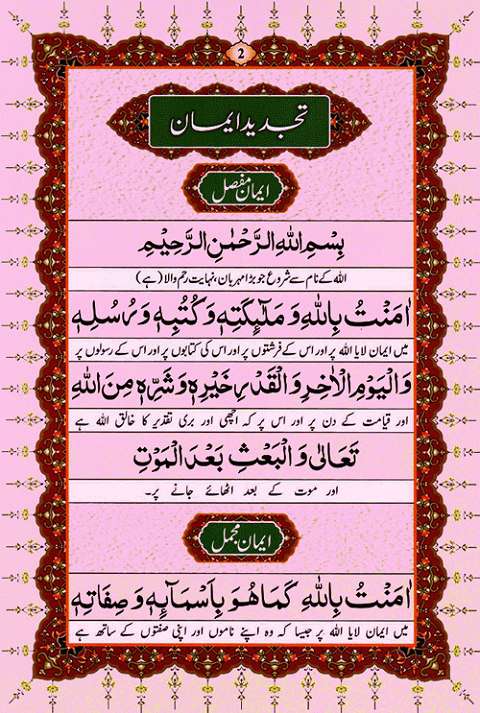 2
تجدید ایمان
ایمان مفصل
بِسْمِ اللهِ الرَّحْمٰنِ الرَّحِيْمِ
اللہ کے نام سے شروع جو بڑا مہربان، نہایت رحم والا (ہے)
اٰمَنْتُ بِاللهِ وَ مَلٰٓئِكَتِهٖ وَ كُتُبِهٖ وَ رُسُلِهٖ
میں ایمان لایا اللہ پر اور اس کے فرشتوں پر اور اس کی کتابوں پر اور اس کے رسولوں پر
وَالْيَوْمِ الْاٰخِرِ وَالْقَدْرِ خَيْرِهٖ وَ شَرِّهٖ مِنَ اللهِ
اور قیامت کے دن پر اور اس پر کہ اچھی اور بری تقدیر کا خالق اللہ ہے
تَعَالٰى وَ الْبَعْثِ بَعْدَ الْمَوْتِ
اور موت کے بعد اٹھائے جانے پر۔
ایمان مجمل
اٰمَنْتُ بِاللهِ كَمَا هُوَ بِاَسْمَآئِهٖ وَ صِفَاتِهٖ
میں ایمان لایا اللہ پر جیسا کہ وہ اپنے ناموں اور اپنی صفتوں کے ساتھ ہے